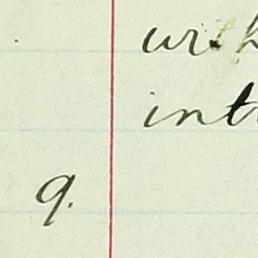 with
int
9.